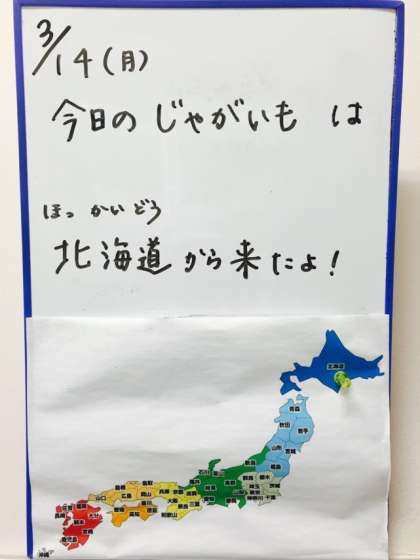 3/14(月)
今日のじゃがいもは
ほっかいどう
北海道から来たよ!
北海道
青森
秋田
岩手
山形
宮城
福島
新潟
石川
群馬
栃木
茨城
埼玉
千葉
神奈川
長野
岐阜
静岡
愛知
三重
京都
兵庫
大阪
和歌山
鳥取
岡山
島根
広島
山口
香川
徳島
高知
福岡
大分
長崎
熊本
宮崎
鹿児島
沖縄